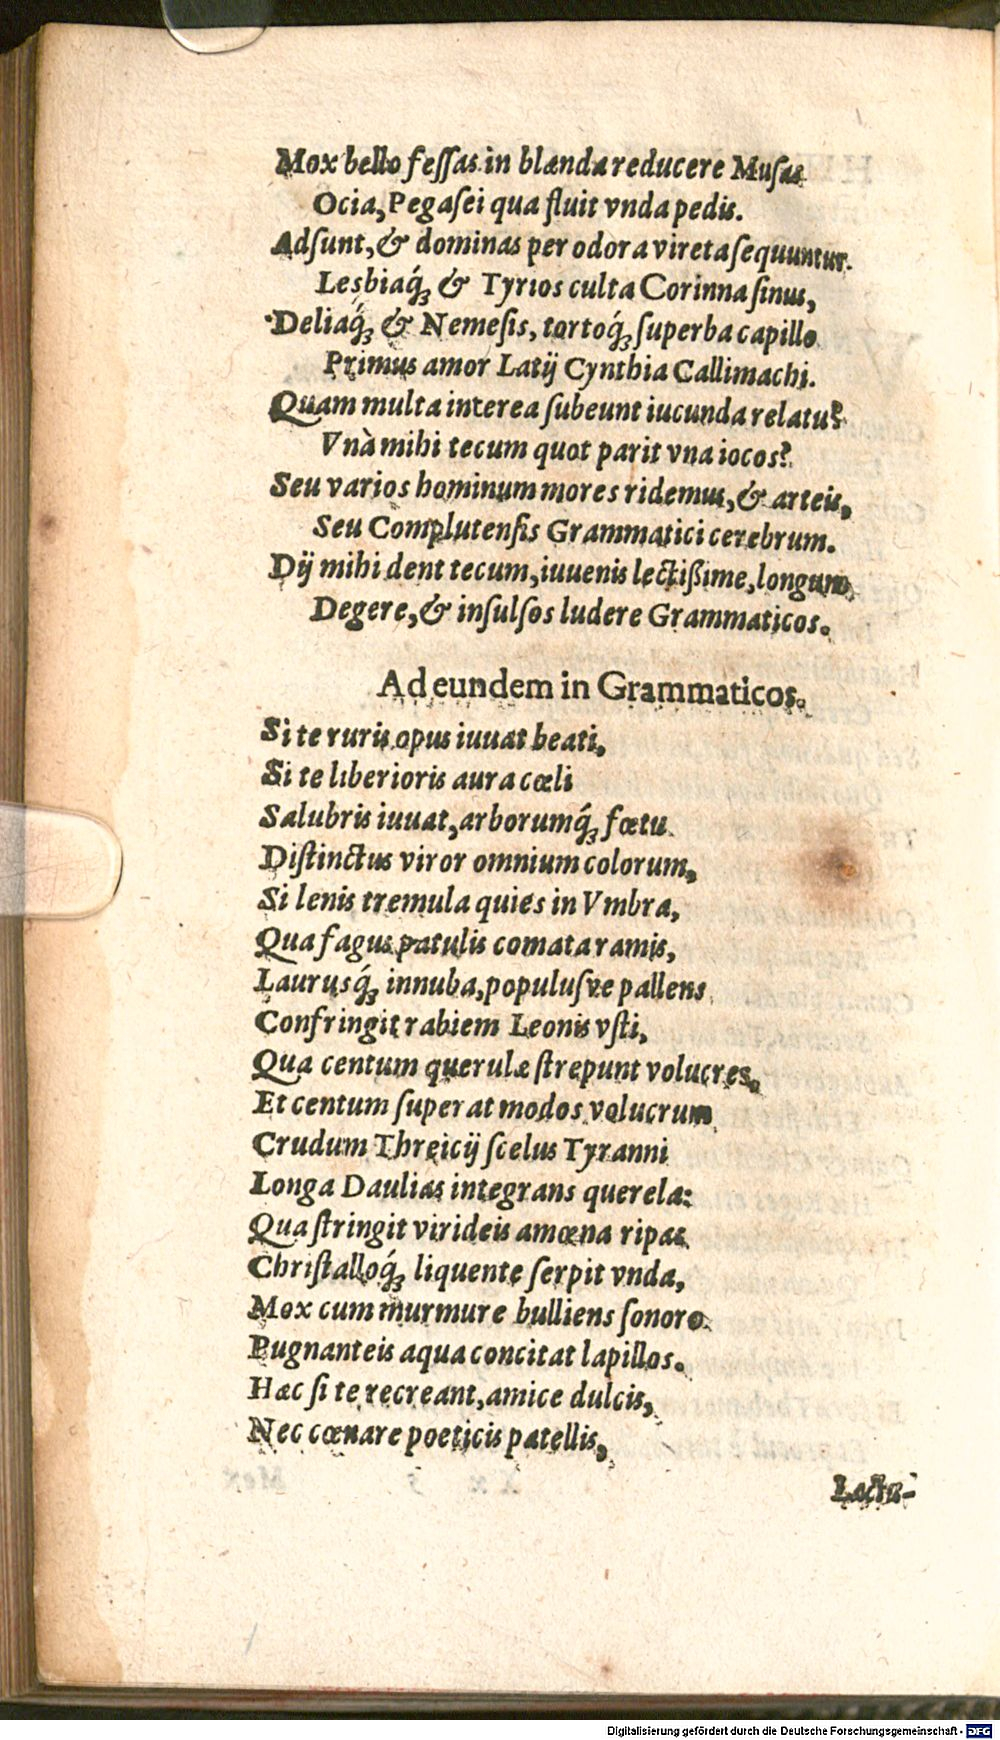 Mox bello fessas in blanda reducere Musas
Ocia, Pegasei qua fluit vnda pedis.
Adsunt, & dominas per odora vireta sequuntur.
Lesbiaq́ꝫ & Tyrios culta Corinna sinus,
Deliaq́ꝫ & Nemesis, tortoq́ꝫ superba capillo
Primus amor Latij Cynthia Callimachi.
Quam multa interea subeunt iucunda relatu?
Vnà mihi tecum quot parit vna iocos?
Seu varios hominum mores ridemus, & arteis,
Seu Complutensis Grammatici cerebrum.
Dij mihi dent tecum, iuuenis lectißime, longum,
Degere, & insulsos ludere Grammaticos.
Ad eundem in Grammaticos.
Si te ruris opus iuuat beati,
Si te liberioris aura cœli
Salubris iuuat, arborumq́ꝫ fœtu
Distinctus viror omnium colorum,
Si lenis tremula quies in Vmbra,
Qua fagus patulis comata ramis,
Laurusq́ꝫ innuba, populusve pallens
Confringit rabiem Leonis vsti,
Qua centum querulæ strepunt volucres,
Et centum superat modos volucrum
Crudum Threicij scelus Tyranni
Longa Daulias integrans querela:
Qua stringit virideis amœna ripas
Christalloq́ꝫ liquente serpit vnda,
Mox cum murmure bulliens sonoro
Pugnanteis aqua concitat lapillos.
Hæc si te recreant, amice dulcis,
Nec cœnare poeticis patellis,
Lactu-
Digitalisierung gefördert durch die Deutsche Forschungsgemeinschaft - DFG